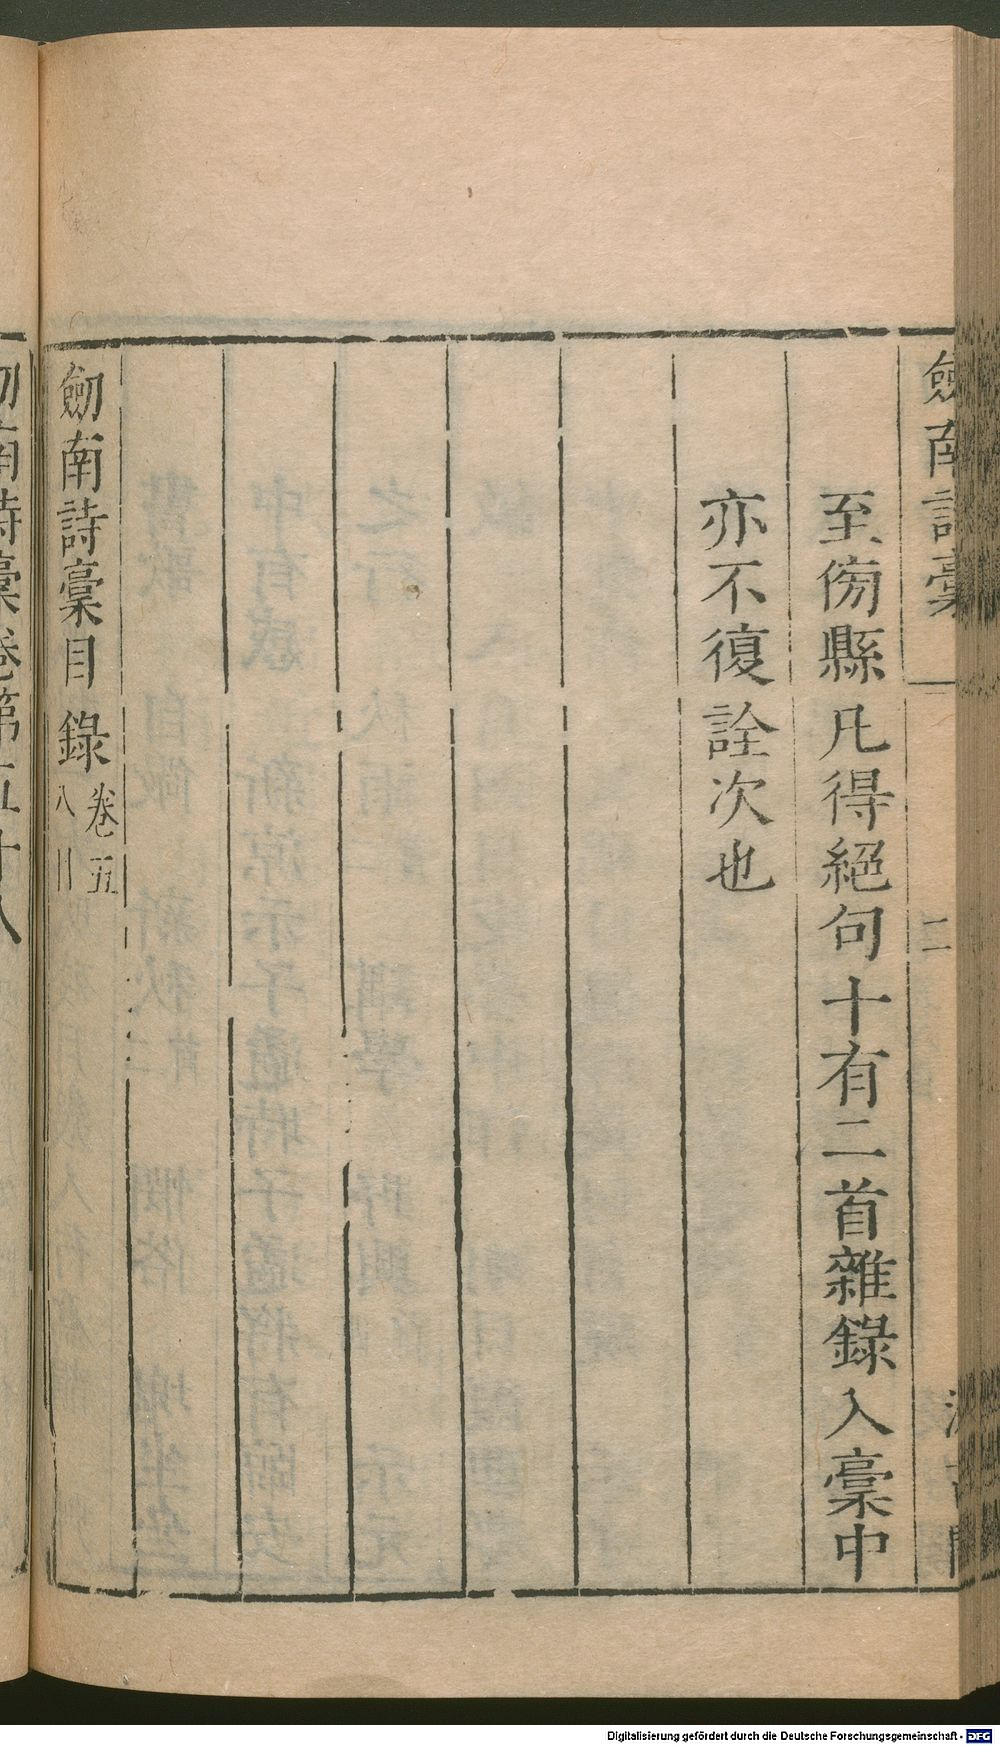 劍南詩稾
二
至傍縣凡得絕句十有二首雜錄入稾中
亦不復詮次也
劒南詩稾目錄
卷五
八
劒南詩稾卷第五十八
Digitalisierung gefördert durch die Deutsche Forschungsgemeinschaft - DFG